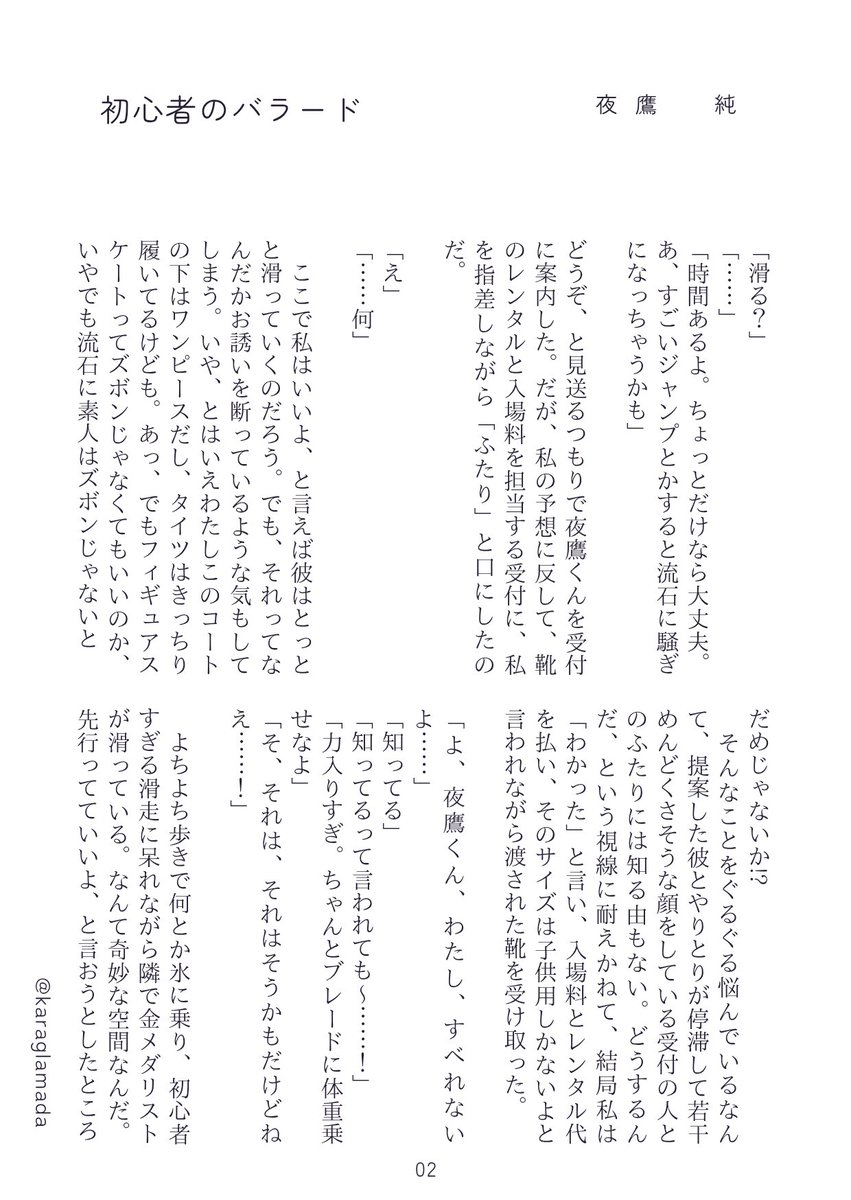 初心者のバラード
夜鷹　純
「滑る？」
「……」
「時間あるよ。ちょっとだけなら大丈夫。
あ、すごいジャンプとかすると流石に騒ぎ
になっちゃうかも」
どうぞ、と見送るつもりで夜鷹くんを受付
に案内した。だが、私の予想に反して、靴
のレンタルと入場料を担当する受付に、私
を指差しながら「ふたり」と口にしたの
だ。
「え」
「……何」
　ここで私はいいよ、と言えば彼はとっと
と滑っていくのだろう。でも、それってな
んだかお誘いを断っているような気もして
しまう。いや、とはいえわたしこのコート
の下はワンピースだし、タイツはきっちり
履いてるけども。あっ、でもフィギュアス
ケートってズボンじゃなくてもいいのか、
いやでも流石に素人はズボンじゃないと
だめじゃないか!?
　そんなことをぐるぐる悩んでいるなん
て、提案した彼とやりとりが停滞して若干
めんどくさそうな顔をしている受付の人と
のふたりには知る由もない。どうするん
だ、という視線に耐えかねて、結局私は
「わかった」と言い、入場料とレンタル代
を払い、そのサイズは子供用しかないよと
言われながら渡された靴を受け取った。
「よ、夜鷹くん、わたし、すべれない
よ……」
「知ってる」
「知ってるって言われても〜……！」
「力入りすぎ。ちゃんとブレードに体重乗
せなよ」
「そ、それは、それはそうかもだけどね
え……！」
　よちよち歩きで何とか氷に乗り、初心者
すぎる滑走に呆れながら隣で金メダリスト
が滑っている。なんて奇妙な空間なんだ。
先行ってていいよ、と言おうとしたところ
@karaglamada
02